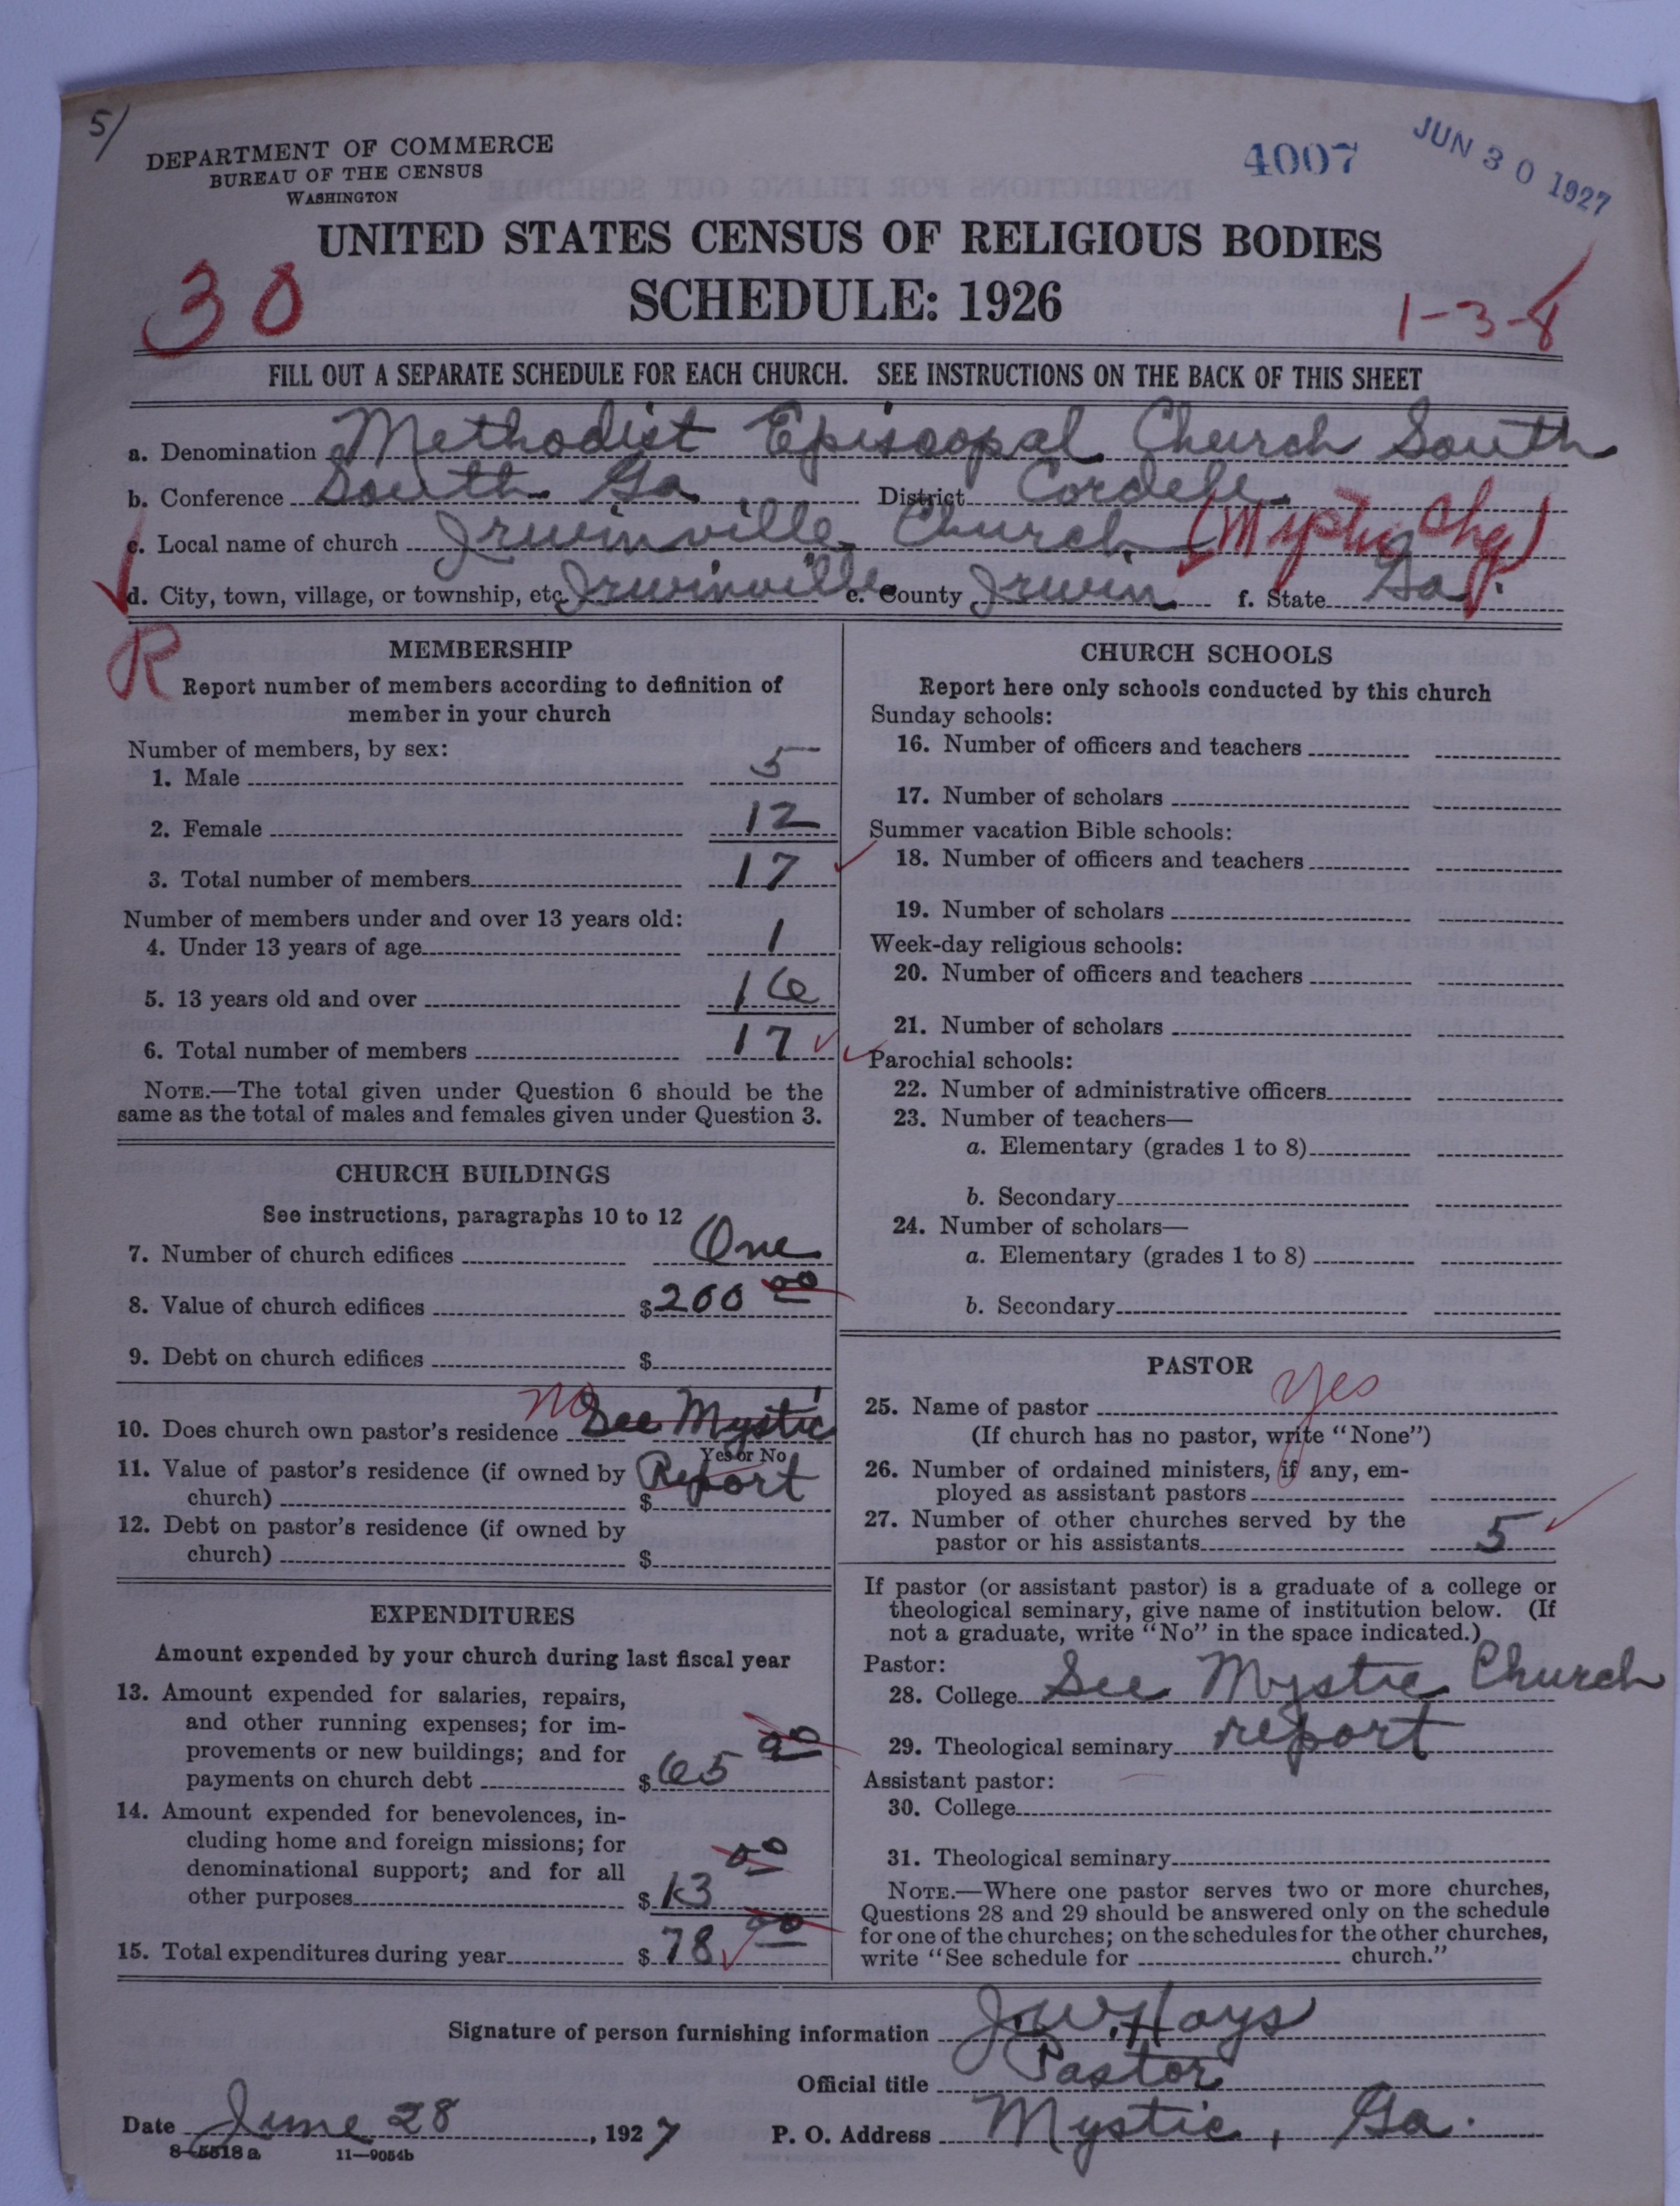 5/
DEPARTMENT OF COMMERCE
BUREAU OF THE CENSUS
WASHINGTON
4007
JUN 30 1927
UNITED STATES CENSUS OF RELIGIOUS BODIES
30
SCHEDULE: 1926
1-3-8
FILL OUT A SEPARATE SCHEDULE FOR EACH CHURCH. SEE INSTRUCTIONS ON THE BACK OF THIS SHEET
a. Denomination Methodist Episcopal Church South
b. Conference South Ga District Cordele
c. Local name of church Irwinville Church (Mystic Chg)
d. City, town, village, or township, etc. Irwinville e. County Irwin f. State Ga.
R
MEMBERSHIP
Report number of members according to definition of
member in your church
Number of members, by sex:
1. Male 5
2. Female 12
3. Total number of members 17
Number of members under and over 13 years old:
4. Under 13 years of age 1
5. 13 years old and over 16
6. Total number of members 17
NOTE.—The total given under Question 6 should be the
same as the total of males and females given under Question 3.
CHURCH BUILDINGS
See instructions, paragraphs 10 to 12
7. Number of church edifices One
8. Value of church edifices $200 00
9. Debt on church edifices $
10. Does church own pastor's residence no See Mystic
Yes or No
11. Value of pastor's residence (if owned by
church) $ Report
12. Debt on pastor's residence (if owned by
church) $
EXPENDITURES
Amount expended by your church during last fiscal year
13. Amount expended for salaries, repairs,
and other running expenses; for im-
provements or new buildings; and for
payments on church debt $65 00
14. Amount expended for benevolences, in-
cluding home and foreign missions; for
denominational support; and for all
other purposes $13 00
15. Total expenditures during year $78 00
CHURCH SCHOOLS
Report here only schools conducted by this church
Sunday schools:
16. Number of officers and teachers
17. Number of scholars
Summer vacation Bible schools:
18. Number of officers and teachers
19. Number of scholars
Week-day religious schools:
20. Number of officers and teachers
21. Number of scholars
Parochial schools:
22. Number of administrative officers
23. Number of teachers—
a. Elementary (grades 1 to 8)
b. Secondary
24. Number of scholars—
a. Elementary (grades 1 to 8)
b. Secondary
PASTOR
25. Name of pastor yes
(If church has no pastor, write "None")
26. Number of ordained ministers, if any, em-
ployed as assistant pastors
27. Number of other churches served by the
pastor or his assistants 5
If pastor (or assistant pastor) is a graduate of a college or
theological seminary, give name of institution below. (If
not a graduate, write "No" in the space indicated.)
Pastor:
28. College See Mystic Church
29. Theological seminary report
Assistant pastor:
30. College
31. Theological seminary
NOTE.—Where one pastor serves two or more churches,
Questions 28 and 29 should be answered only on the schedule
for one of the churches; on the schedules for the other churches,
write "See schedule for church."
Signature of person furnishing information J.W. Hays
Official title Pastor
Date June 28, 1927 P. O. Address Mystic, Ga.
8-5518a 11-9054b